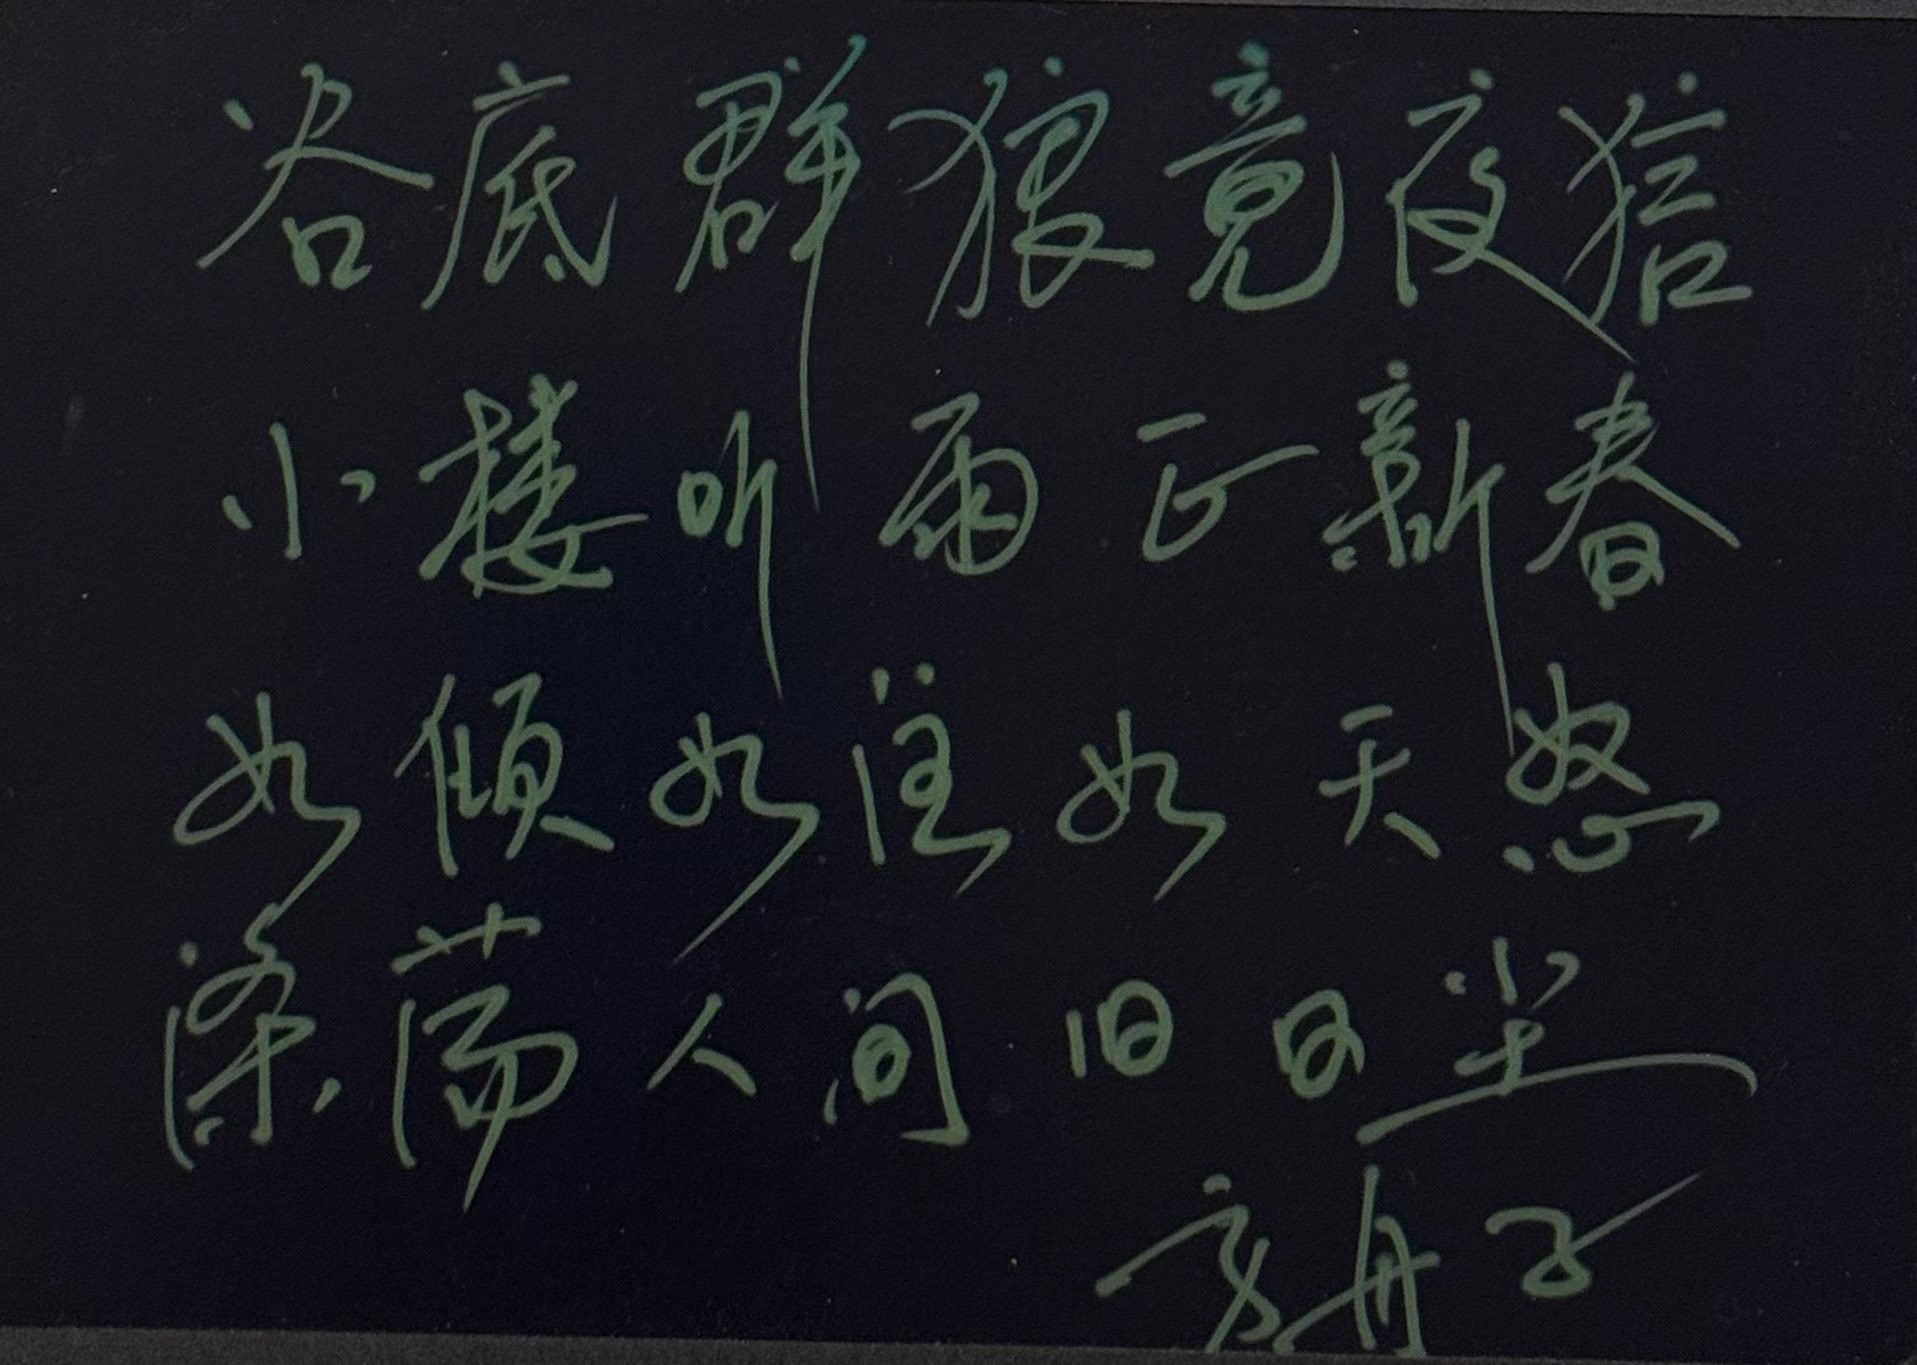 谷底群狼竟夜狺
小楼听雨正新春
如倾如注如天怒
涤荡人间旧日尘
方舟子